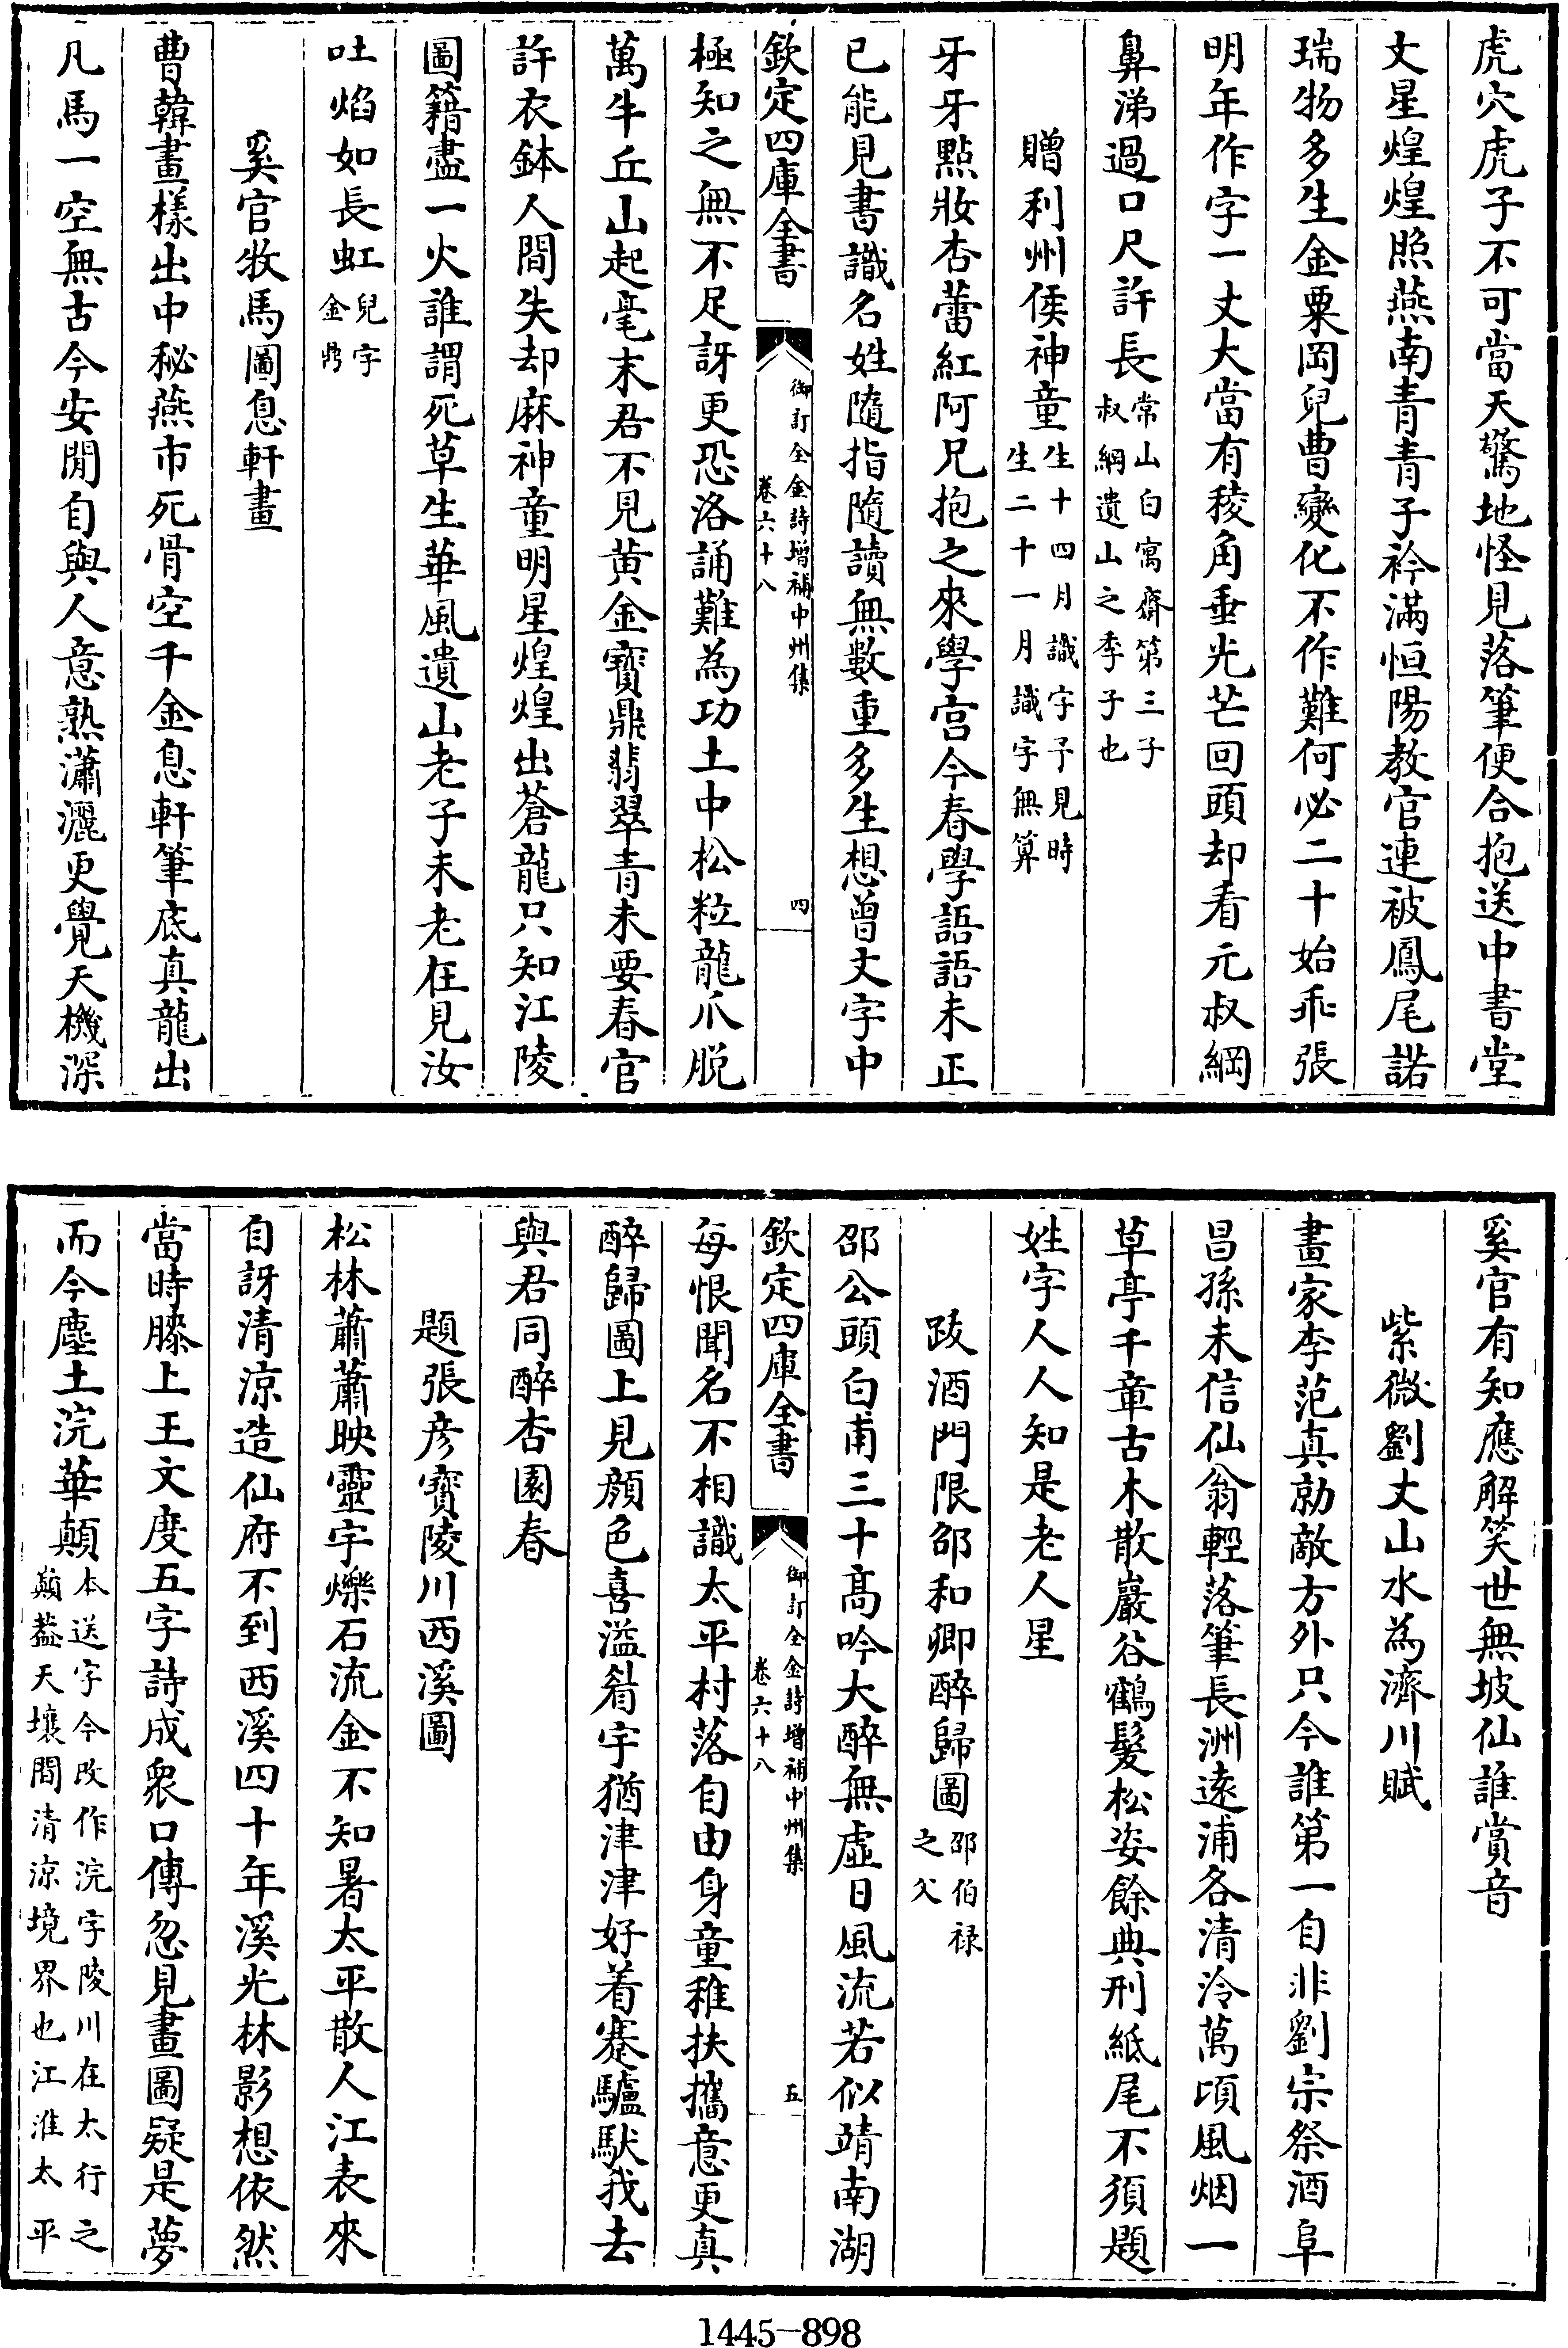 虎穴虎子不可當天驚地怪見落筆便合抱送中書堂
文星煌煌照燕南青青子衿滿恒陽教官連被鳳尾諾
瑞物多生金粟岡兒曹變化不作難何必二十始乖張
明年作字一丈大當有稜角垂光芒回頭却看元叔綱
鼻涕過口尺許長常山白寓齋第三子
叔綱遺山之季子也
贈利州侯神童生十四月識字予見時
生二十一月識字無算
牙牙點妝杏蕾紅阿兄抱之來學宫今春學語語未正
已能見書識名姓隨指隨讀無數重多生想曾文字中
欽定四庫全書
御訂全金詩增補中州集
卷六十八
四
極知之無不足訝更恐洛誦難為功土中松粒龍爪脱
萬牛丘山起毫末君不見黄金寳鼎翡翠青未要春官
許衣鉢人間失却麻神童明星煌煌出蒼龍只知江陵
圖籍盡一火誰謂死草生華風遺山老子未老在見汝
吐焰如長虹兒字
金鼎
奚官牧馬圖息軒畫
曹韓畫樣出中秘燕市死骨空千金息軒筆底真龍出
凡馬一空無古今安閒自與人意熟瀟灑更覺天機深
奚官有知應解笑世無坡仙誰賞音
紫微劉丈山水為濟川賦
畫家李范真勍敵方外只今誰第一自非劉宗祭酒阜
昌孫未信仙翁輕落筆長洲遠浦各清泠萬頃風烟一
草亭千章古木散巖谷鶴髮松姿餘典刑紙尾不須題
姓字人人知是老人星
跋酒門限邵和卿醉歸圖邵伯禄
之父
邵公頭白甫三十髙吟大醉無虚日風流若似靖南湖
欽定四庫全書
御訂全金詩增補中州集
卷六十八
五
每恨聞名不相識太平村落自由身童稚扶攜意更真
醉歸圖上見顔色喜溢眉宇猶津津好着蹇驢馱我去
與君同醉杏園春
題張彦寳陵川西溪圖
松林蕭蕭映靈宇爍石流金不知暑太平散人江表來
自訝清涼造仙府不到西溪四十年溪光林影想依然
當時膝上王文度五字詩成衆口傳忽見畫圖疑是夢
而今塵土浣華顛本送字今改作浣字陵川在太行之
顛葢天壤間清涼境界也江淮太平
1445-898